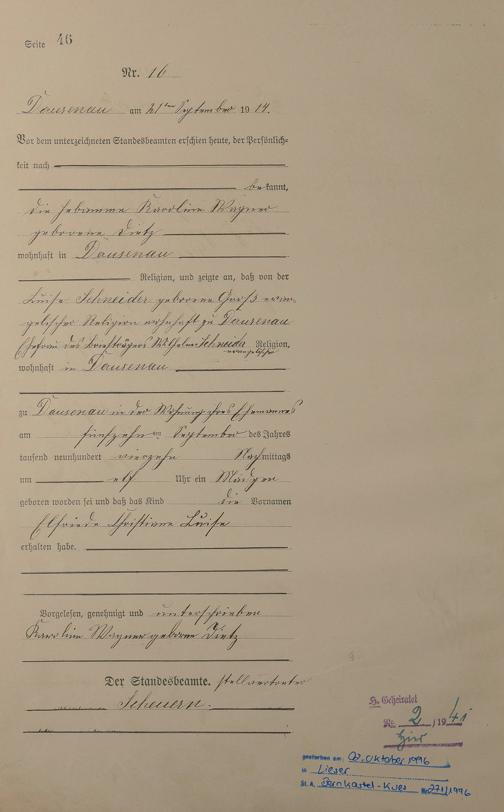 Seite 46
Nr. 16
Dausenau am 21ten September 1914.
Vor dem unterzeichneten Standesbeamten erschien heute, der Persönlich-
keit nach
bekannt,
die Hebamme Karoline Wagner
geborene Dietz
wohnhaft in Dausenau
Religion, und zeigte an, daß von der
Luise Schneider geborene Groß evan-
gelischer Religion wohnhaft zu Dausenau
Ehefrau des Briefträgers Wilhelm Schneider Religion,
evangelischer
wohnhaft in Dausenau
zu Dausenau in der Wohnung ihres Ehemannes
am fünfzehnten September des Jahres
tausend neunhundert vierzehn Nachmittags
um elf Uhr ein Mädchen
geboren worden sei und daß das Kind die Vornamen
Elfriede Christiane Luise
erhalten habe.
Vorgelesen, genehmigt und unterschrieben
Karoline Wagner geborene Dietz
Der Standesbeamte. stellvertreter
Scheuern.
H. Geheiratet
Nr. 2 / 1941
hier
gestorben am: 02. Oktober 1996
in Lieser
St.A. Bernkastel-Kues Nr. 271/1996